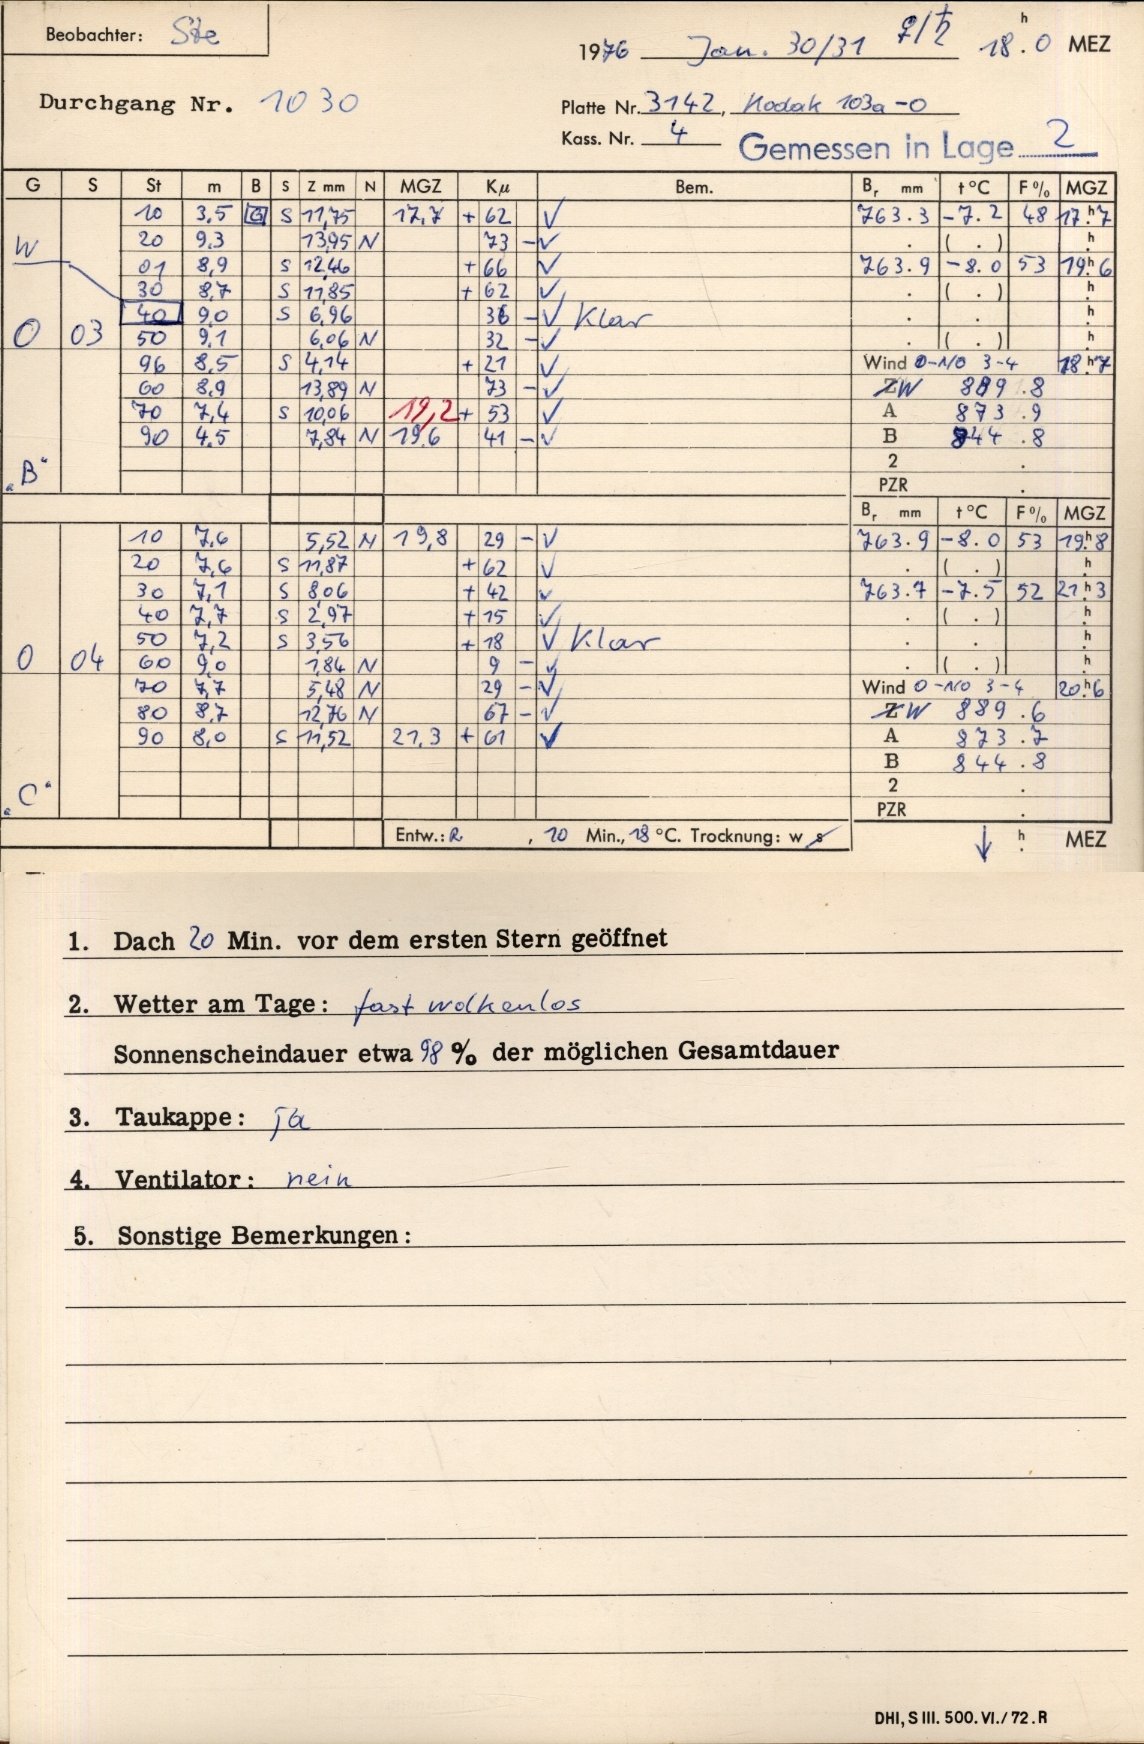 Beobachter: Ste
1976 Jan. 30/31 ♀/♄ 18.ʰ0 MEZ
Durchgang Nr. 1030
Platte Nr. 3142, Kodak 103a-O
Kass. Nr. 4 Gemessen in Lage 2
G S St m B S Z mm N MGZ Kμ Bem. Bᵣ mm t °C F % MGZ
10 3,5 G S 11,75 17,7 + 62 ✓ 763.3 -7.2 48 17.ʰ7
20 9,3 13,95 N 73 - ✓ . ( . ) ʰ
W 01 8,9 S 12,46 + 66 ✓ 763.9 -8.0 53 19.ʰ6
30 8,7 S 11,85 + 62 ✓ . ( . ) ʰ
40 9,0 S 6,96 36 - ✓ Klar . . ʰ
O 03 50 9,1 6,06 N 32 - ✓ . ( . ) ʰ
96 8,5 S 4,14 + 21 ✓ Wind O-NO 3-4 18.ʰ7
60 8,9 13,89 N 73 - ✓ ZW 889.8
70 7,4 S 10,06 19,2 + 53 ✓ A 873.9
90 4,5 7,84 N 19,6 41 - ✓ B 844.8
„B“ 2 .
PZR .
Bᵣ mm t °C F % MGZ
10 7,6 5,52 N 19,8 29 - ✓ 763.9 -8.0 53 19.ʰ8
20 7,6 S 11,87 + 62 ✓ . ( . ) ʰ
30 7,1 S 8,06 + 42 ✓ 763.7 -7.5 52 21.ʰ3
40 7,7 S 2,97 + 15 ✓ . ( . ) ʰ
50 7,2 S 3,56 + 18 ✓ Klar . . ʰ
O 04 60 9,0 1,84 N 9 - ✓ . ( . ) ʰ
70 7,7 5,48 N 29 - ✓ Wind O-NO 3-4 20.ʰ6
80 8,7 12,76 N 67 - ✓ ZW 889.6
90 8,0 S 11,52 21,3 + 61 ✓ A 873.7
B 844.8
„C“ 2 .
PZR .
Entw.: R, 10 Min., 18 °C. Trocknung: w s ↓ ʰ. MEZ
1. Dach 20 Min. vor dem ersten Stern geöffnet
2. Wetter am Tage: fast wolkenlos
Sonnenscheindauer etwa 98 % der möglichen Gesamtdauer
3. Taukappe: ja
4. Ventilator: nein
5. Sonstige Bemerkungen:
DHI, S III. 500. VI./72. R